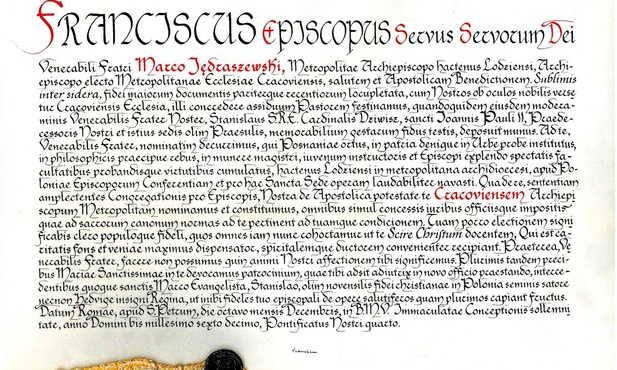 FRANCISCUS EPISCOPUS Servus Servorum Dei
Venerabili Fratri Marco Jędraszewski, Metropolitae Archiepiscopo hactenus Lodziensi, Archi-
episcopo electo Metropolitanae Ecclesiae Cracoviensis, salutem et Apostolicam Benedictionem. Sublimis
inter sidera, fidei maiorum documentis pariterque recentiorum locupletata, cum Nostros ob oculos nobilis verse
tur Cracoviensis Ecclesia, illi concredere assiduum Pastorem festinamus, quandoquidem eiusdem modera-
minis Venerabilis Frater Noster, Stanislaus S.R.E. Cardinalis Dziwisz, sancti Ioannis Pauli II, Praede-
cessoris Nostri et istius sedis olim Praesulis, memorabilium gestarum fidus testis, deposuit munus. Ad te,
Venerabilis Frater, nominatim decurrimus, qui Posnaniae ortus, in patria denique in Urbe probe institutus,
in philosophicis praecipue rebus, in munere magistri, iuvenum instructoris et Episcopi explendo spectatis fa-
cultatibus probandisque virtutibus cumulatus, hactenus Lodziensi in metropolitana archidioecesi, apud Po-
loniae Episcoporum Conferentiam et pro hac Sancta Sede operam laudabiliter navasti. Qua de re, sententiam
amplectentes Congregationis pro Episcopis, Nostra de Apostolica potestate te Cracoviensem Archiepi
scopum Metropolitam nominamus et constituimus, omnibus simul concessis iuribus officiisque impositis
quae ad sacrorum canonum normas ad te pertinent ad tuamque condicionem. Tuam porro electionem signi
ficabis clero populoque fideli, quos omnes iam nunc cohortamur ut te Scire Christum docentem, Qui est ca-
ritatis fons et veniae maximus dispensator, spiritalemque ductorem convenienter recipiant. Praeterea, Ve
nerabilis Frater, facere non possumus quin animi Nostri affectionem tibi significemus. Plurimis tandem preci-
bus Mariae Sanctissimae in te devocamus patrocinium, quae tibi adsit adiutrix in novo officio praestando, interce-
dentibus quoque sanctis Marco Evangelista, Stanislao, olim novensilis fidei christianae in Polonia seminis satore
necnon Hedvige insigni Regina, ut inibi fideles tuo episcopali de opere salutiferos quam plurimos capiant fructus.
Datum Romae, apud S. Petrum, die octavo mensis Decembris, in B.M.V. Immaculatae Conceptionis sollemni
tate, anno Domini bis millesimo sexto decimo, Pontificatus Nostri quarto.
Franciscus